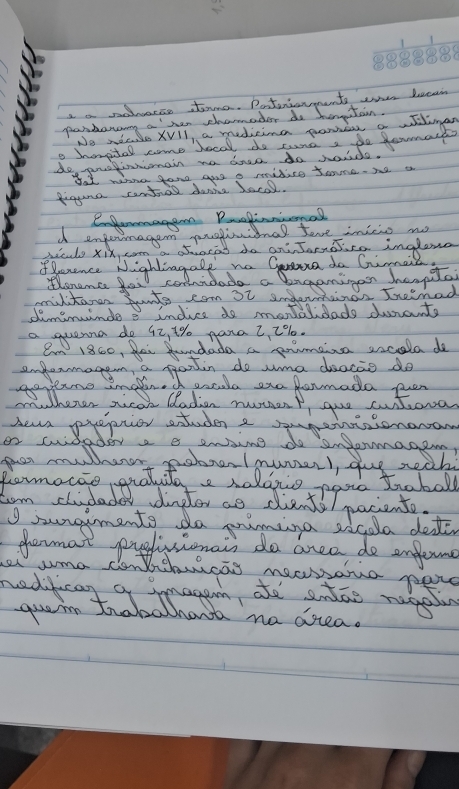 e a salvação eterna. Posteriormente esses locais
passaram a ser chamados de hospitais.
No século XVII, a medicina passou a utilizar
o hospital como local de cura e de formação
de profissionais na área da saúde.
Foi nessa fase que o médico torna-se a
figura central desse local.
Enfermagem Profissional
A enfermagem profissional teve início no
século XIX, com a atuação da aristocrática inglesa
Florence Nightingale na Guerra da Crimeia.
Florence foi convidada a organizar hospitai
militares junto com 32 enfermeiras Treinad
diminuindo o índice de mortalidade durante
a guerra de 42,7% para 2,2%.
Em 1860, foi fundada a primeira escola de
enfermagem, a partir de uma doação do
governo inglês. A escola era formada por
mulheres ricas (Ladies nurses), que custeavam
seus próprios estudos e supervisionavam
os cuidados e o ensino de enfermagem,
por mulheres pobres (nurses), que recebi
formação gratuita e salário para trabalh
com cuidados diretos ao cliente/paciente.
O surgimento da primeira escola destin
formar profissionais da área de enferma
oi uma contribuição necessária para
modificar a imagem, até então negativ
quem trabalhava na área.